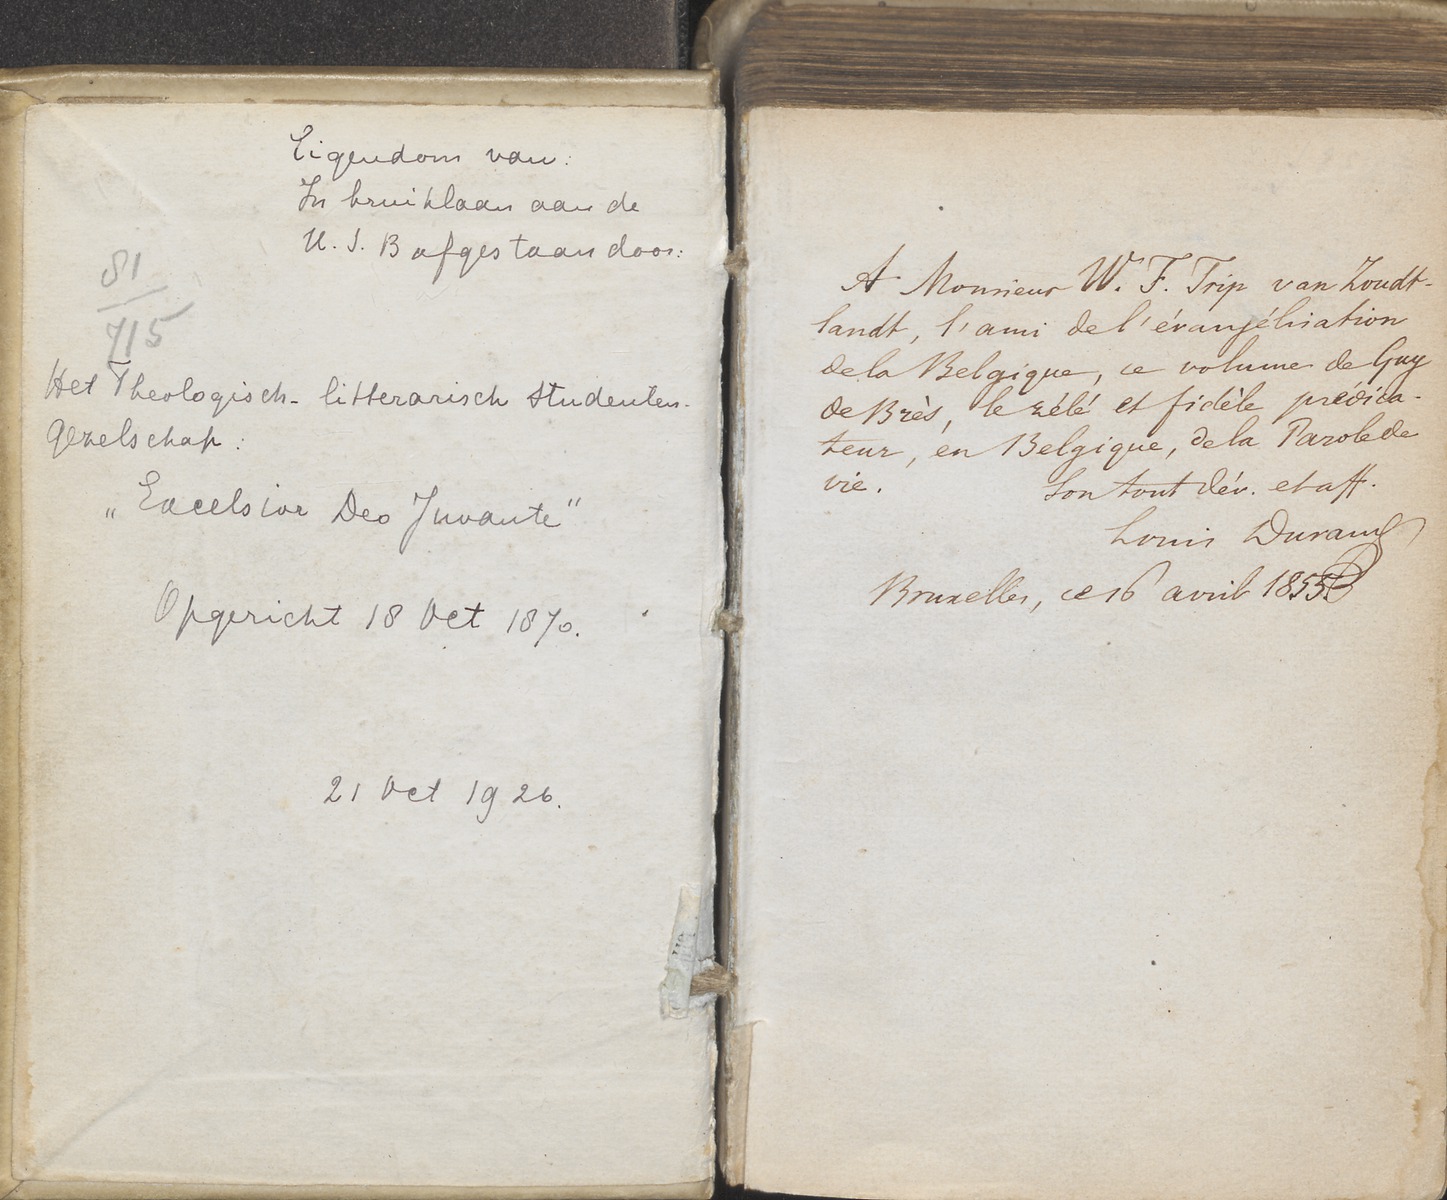 Eigendom van:
In bruikleen aan de
U. S. B afgestaan door:
81
715
Het Theologisch- litterarisch Studenten-
gezelschap:
„Excelsior Deo Juvante"
Opgericht 18 Oct 1870.
21 Oct 1926.
A Monsieur W. F. Trip van Zoudt-
landt, l'ami de l'évangélisation
de la Belgique, ce volume de Guy
de Brès, le zélé et fidèle prédica-
teur, en Belgique, de la Parole de
vie. Son tout dév. et aff.
Louis Durand
Bruxelles, ce 16 avril 1855.